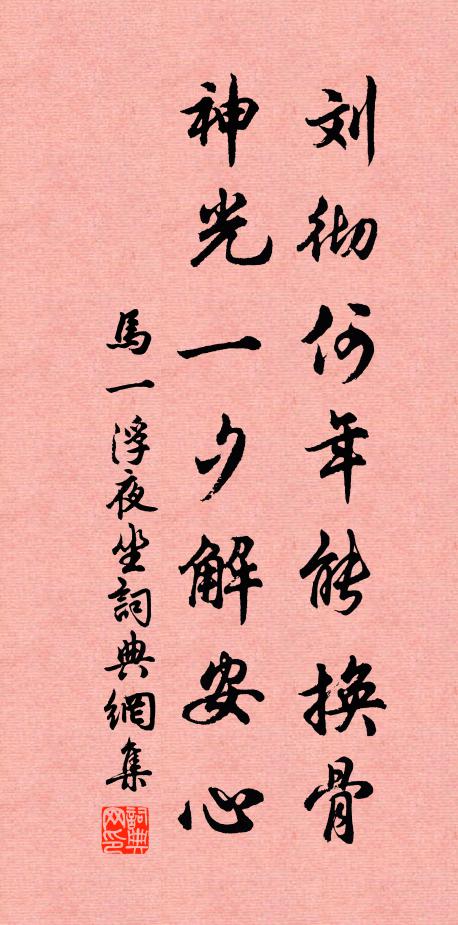 刘彻何年能换骨
神光一夕解安心
馬一浮夜坐詞典網集
詞典网印